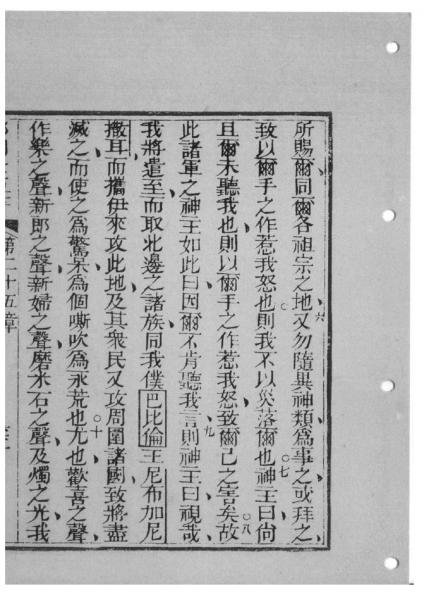 所賜爾同爾各祖宗之地六又勿隨異神類爲事之或拜之
致以爾手之作惹我怒也則我不以災落爾也七神主曰尙
且爾未聽我也則以爾手之作惹我怒致爾己之害矣八故
此諸軍之神主如此曰因爾不肯聽我言九則神主曰視哉
我將遣至而取北邊之諸族同我僕巴比倫王尼布加尼
撒耳而攜伊來攻此地及其衆民又攻周圍諸國致將盡
滅之而使之爲驚呆爲個嘶吹爲永荒也十尤也歡喜之聲
作樂之聲新郎之聲新婦之聲磨米石之聲及燭之光我
第二十五章